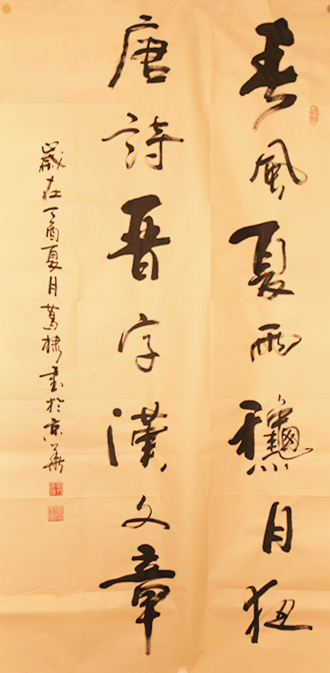 春風夏雨龝月夜
唐詩晋字漢文章
歲在丁酉夏月書於京華